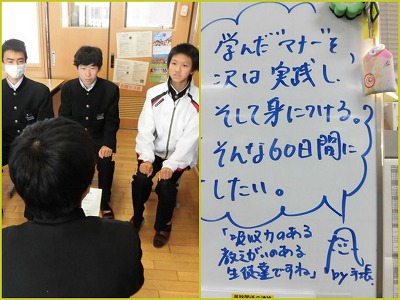 学んだ"マナー"を
次は実践し、
そして身につける。
そんな60日間に
したい。
「吸収力のある
教えがいのある
生徒達ですね」
by